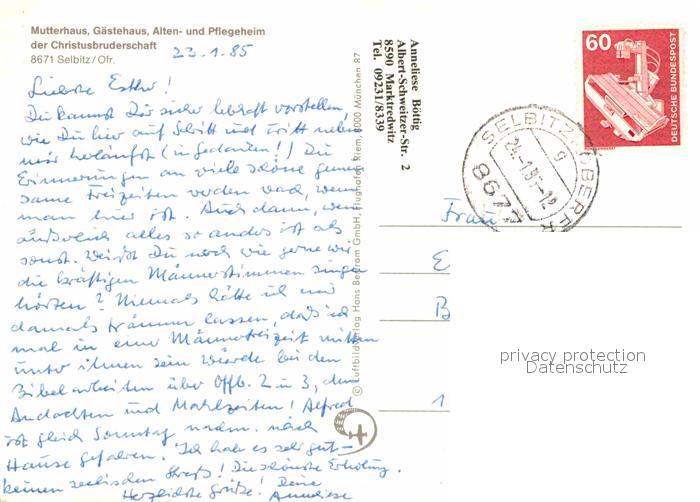 Mutterhaus, Gästehaus, Alten- und Pflegeheim
der Christusbruderschaft
8671 Selbitz/Ofr.
23.1.85
Liebste Esther!
Du kannst Dir sicher lebhaft vorstellen,
wie Du hier auf Schritt und Tritt neben
mir herläufst (in Gedanken!) Die
Erinnerungen an viele schöne gemein-
same Freizeiten werden wach, wenn
man hier ist. Auch dann, wenn
äußerlich alles so anders ist als
sonst. Weißt Du noch wie gerne wir
die kräftigen Männerstimmen singen
hörten? Niemals hätte ich mir
damals träumen lassen, daß ich
mal in einer Männerfreizeit mitten
unter ihnen sein würde bei den
Bibelarbeiten über Offb. 2 u 3, den
Andachten und Mahlzeiten! Alfred
ist gleich Sonntag nachm. nach
Hause gefahren. Ich hab es sehr gut-
keinen seelischen Streß! Die schönste Erholung.
Herzlichste Grüße! Deine
Anneliese
© Luftbildverlag Hans Bertram GmbH, Flughafen Riem, 8000 München 87
Anneliese Böttig
Albert-Schweitzer-Str. 2
8590 Marktredwitz
Tel. 09231/8339
60
DEUTSCHE BUNDESPOST
SELBITZ, OBERFR
8677
Frau
E
B
1
privacy protection
Datenschutz